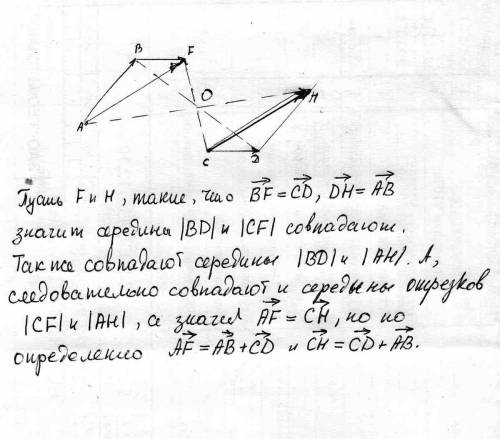 B F
O
A H
C D
Пусть F и H, такие, что BF⃗ = CD⃗, DH⃗ = AB⃗
значит середины |BD| и |CF| совпадают.
Так же совпадают середины |BD| и |AH|. А,
следовательно совпадают и середины отрезков
|CF| и |AH|, а значит AF⃗ = CH⃗, но по
определению AF⃗ = AB⃗ + CD⃗ и CH⃗ = CD⃗ + AB⃗.